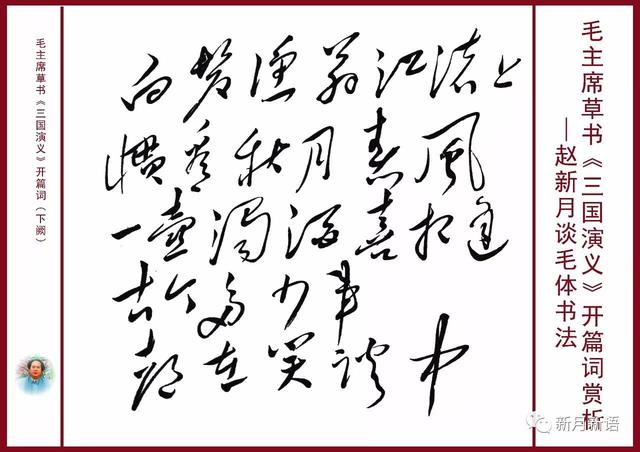 毛主席草书《三国演义》开篇词赏析
—赵新月谈毛体书法
白髮渔翁江渚上
慣看秋月春風
一壺濁酒喜相逢
古今多少事
都在笑談中
毛主席草书《三国演义》开篇词（下阙）
新月新语